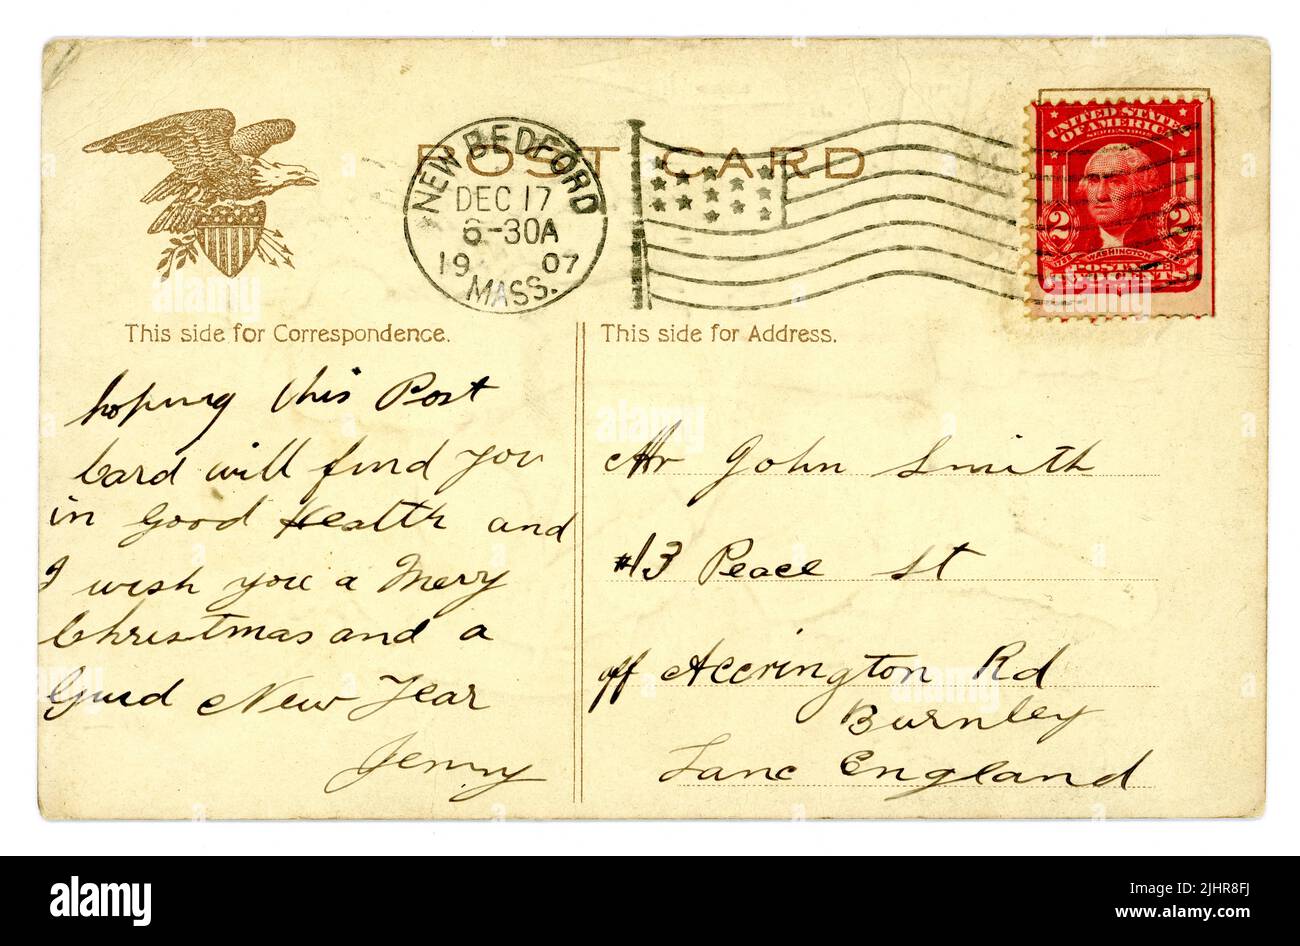 POST CARD
NEW BEDFORD
DEC 17
6-30A
1907
MASS.
UNITED STATES
OF AMERICA
SERIES 1902
2 2
WASHINGTON
POSTAGE
TWO CENTS
This side for Correspondence.
hoping this Post
Card will find you
in Good Health and
I wish you a Merry
Christmas and a
Good New Year
Jenny
This side for Address.
Mr John Smith
#13 Peace St
off Accrington Rd
Burnley
Lanc England
alamy
alamy
Image ID: 2JHR8FJ
www.alamy.com